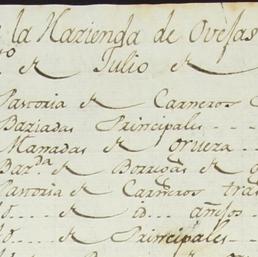 la Hazienda de Ovejas
to de Julio de
Pastoria de Carneros
Baziadas Principales
Manadas de oruera
Barda de Borregas de
Pastoria de Carneros tras
Yd. de id. añejos
Yd. de Principales